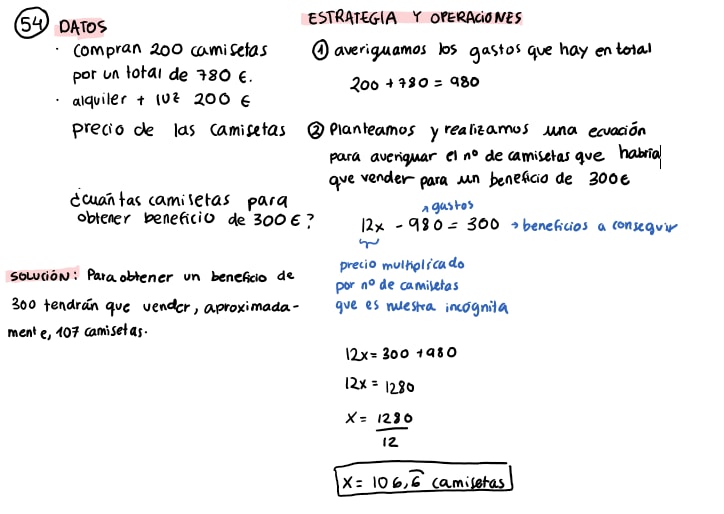 54 DATOS
· compran 200 camisetas
por un total de 780 €.
· alquiler + luz 200 €
precio de las camisetas
¿cuántas camisetas para
obtener beneficio de 300 €?
SOLUCIÓN: Para obtener un beneficio de
300 tendrán que vender, aproximada-
mente, 107 camisetas.
ESTRATEGIA Y OPERACIONES
① averiguamos los gastos que hay en total
200 + 780 = 980
② Planteamos y realizamos una ecuación
para averiguar el nº de camisetas que habría
que vender para un beneficio de 300€
gastos
12x - 980 = 300 → beneficios a conseguir
precio multiplicado
por nº de camisetas
que es nuestra incógnita
12x = 300 + 980
12x = 1280
x = 1280
12
x = 106,6̂ camisetas